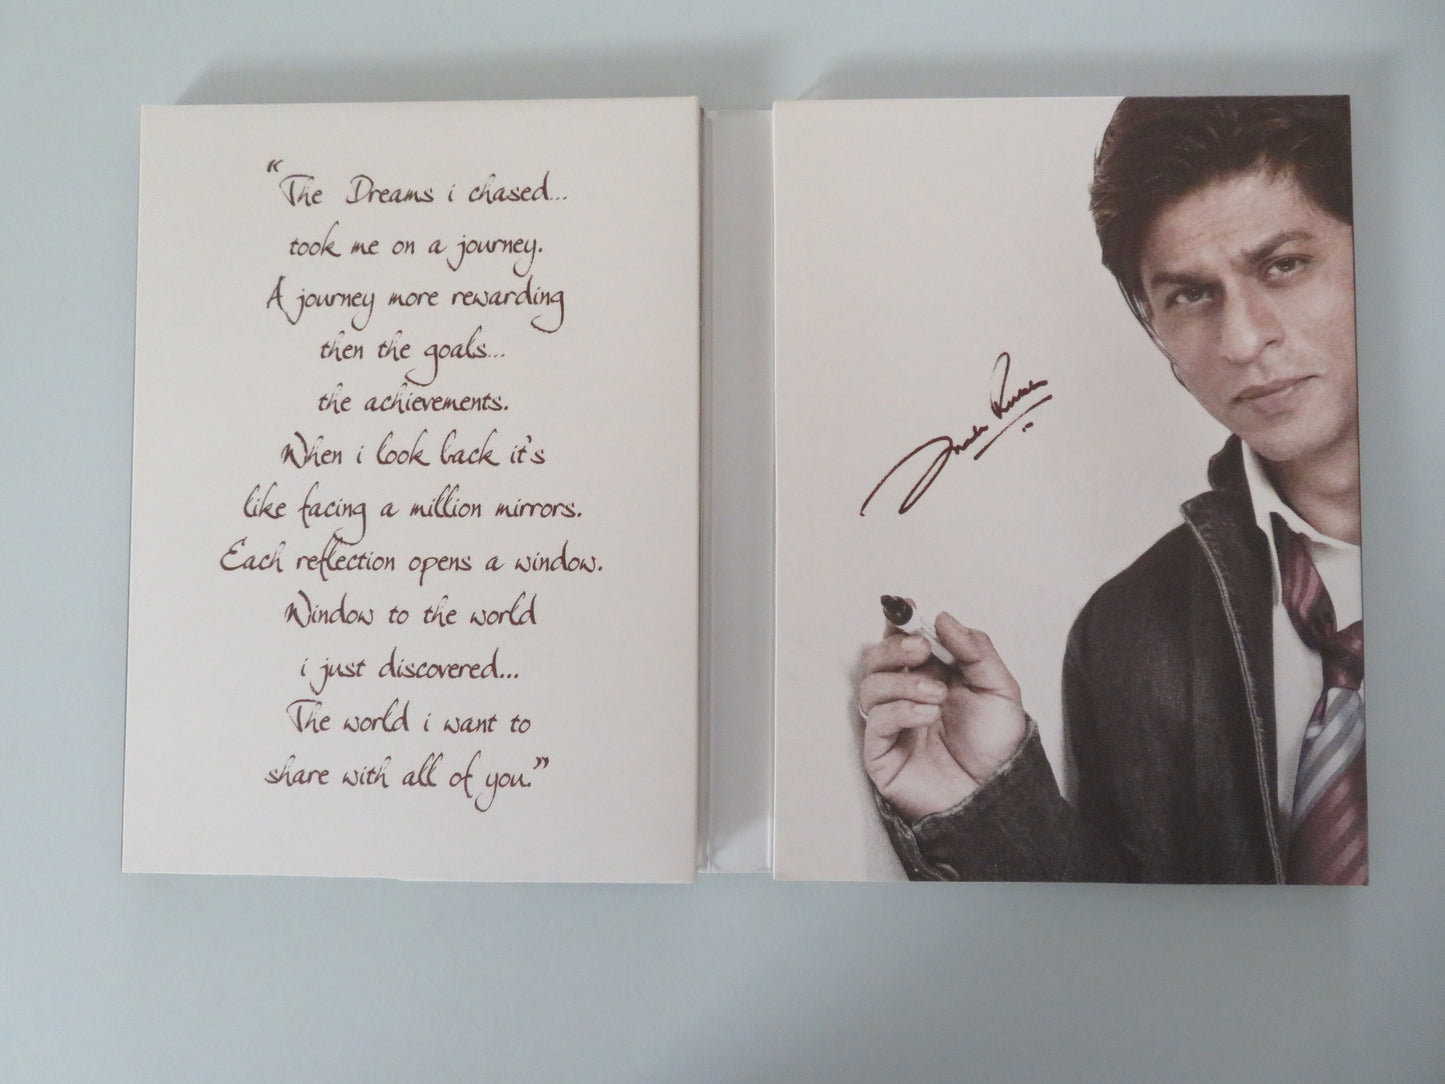 “The Dreams i chased...
took me on a journey.
A journey more rewarding
then the goals...
the achievements.
When i look back it's
like facing a million mirrors.
Each reflection opens a window.
Window to the world
i just discovered...
The world i want to
share with all of you.”